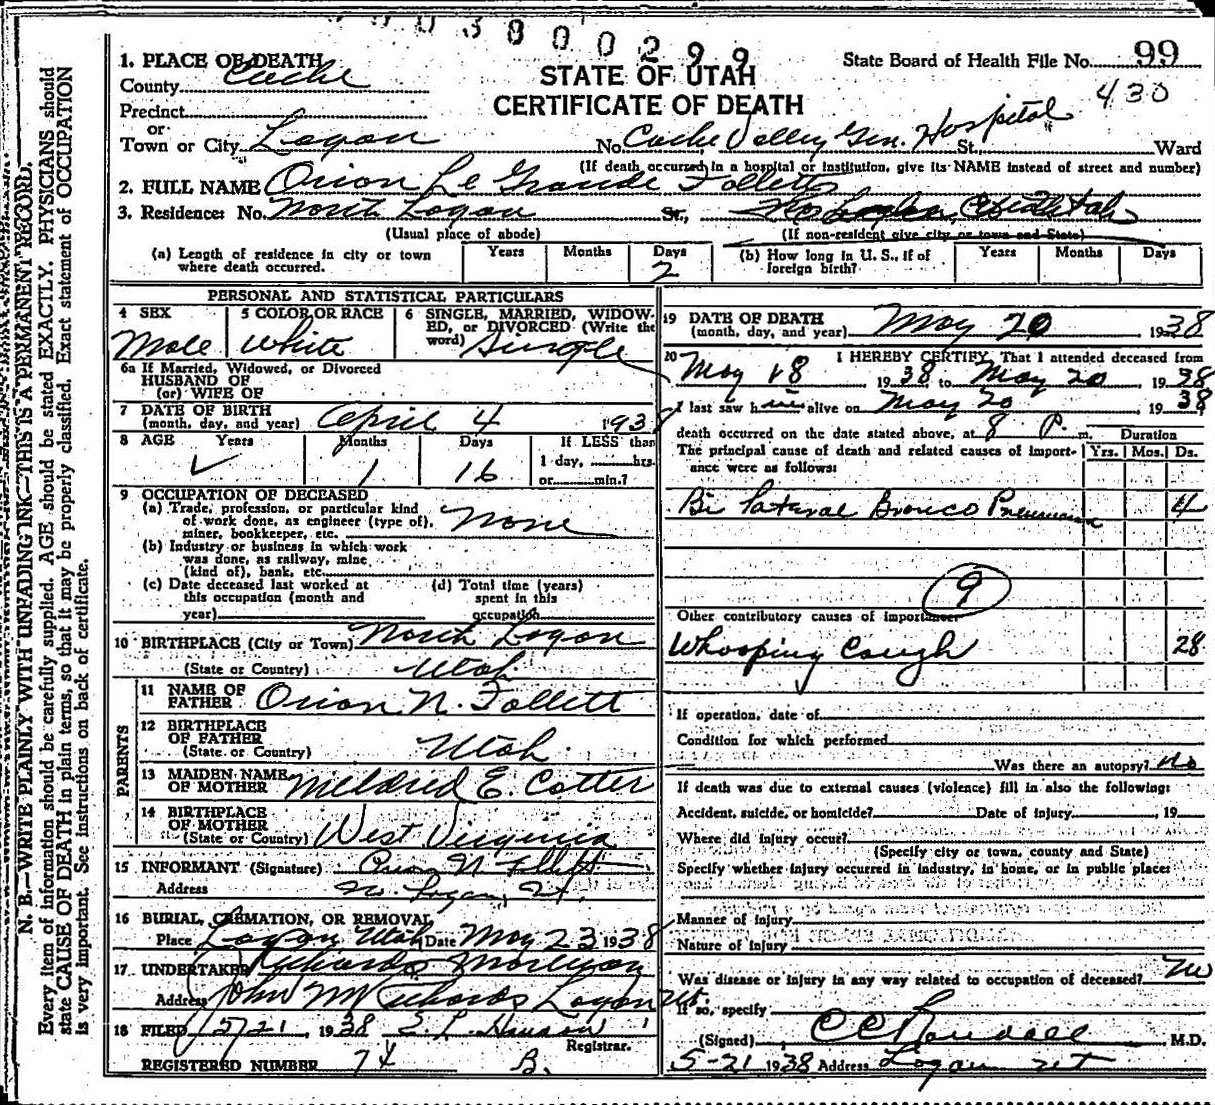 3800299
1. PLACE OF DEATH
County Cache
STATE OF UTAH
CERTIFICATE OF DEATH
State Board of Health File No. 99
430
Precinct
or
Town or City Logan No. Cache Valley Gen. Hospital St. Ward
(If death occurred in a hospital or institution, give its NAME instead of street and number)
2. FULL NAME Orion Le Grande Follett
3. Residence: No. North Logan St.,
(Usual place of abode) (If non-resident give city or town and State)
(a) Length of residence in city or town where death occurred. Years Months Days 2
(b) How long in U. S., if of foreign birth? Years Months Days
PERSONAL AND STATISTICAL PARTICULARS
4 SEX Male
5 COLOR OR RACE White
6 SINGLE, MARRIED, WIDOWED, or DIVORCED (Write the word) Single
6a If Married, Widowed, or Divorced
HUSBAND OF
(or) WIFE OF
7 DATE OF BIRTH
(month, day, and year) April 4 1938
8 AGE Years ✓ Months 1 Days 16 If LESS than
1 day, ........hrs.
or........min.?
9 OCCUPATION OF DECEASED
(a) Trade, profession, or particular kind
of work done, as engineer (type of), None
miner, bookkeeper, etc.
(b) Industry or business in which work
was done, as railway, mine
(kind of), bank, etc.
(c) Date deceased last worked at
this occupation (month and
year)
(d) Total time (years)
spent in this
occupation
10 BIRTHPLACE (City or Town) North Logan
(State or Country) Utah
PARENTS
11 NAME OF
FATHER Orion N. Follett
12 BIRTHPLACE
OF FATHER
(State or Country) Utah.
13 MAIDEN NAME
OF MOTHER Mildred E. Cotter
14 BIRTHPLACE
OF MOTHER
(State or Country) West Virginia
15 INFORMANT (Signature) Orion N. Follett
Address No. Logan, Ut.
16 BURIAL, CREMATION, OR REMOVAL
Place Logan Utah Date May 23 1938
17. UNDERTAKER Richards Mortuary
Address John M Richards Logan Ut.
18 FILED 5/21, 1938
Registrar.
REGISTERED NUMBER 74 B.
19 DATE OF DEATH
(month, day, and year) May 20 1938
20 I HEREBY CERTIFY, That I attended deceased from
May 18 1938 to May 20, 1938
I last saw him alive on May 20, 1938
death occurred on the date stated above, at 8 P. m.
The principal cause of death and related causes of importance were as follows:
Duration
Yrs. Mos. Ds.
Bi Lateral Bronco Pneumonia 4
9
Other contributory causes of importance:
Whooping Cough 28
If operation, date of
Condition for which performed
Was there an autopsy? No
If death was due to external causes (violence) fill in also the following:
Accident, suicide, or homicide? Date of injury, 19
Where did injury occur?
(Specify city or town, county and State)
Specify whether injury occurred in industry, in home, or in public place:
Manner of injury
Nature of injury
Was disease or injury in any way related to occupation of deceased? No
If so, specify
(Signed) C C Randall, M.D.
5-21 1938 Address Logan Ut
N. B.—WRITE PLAINLY WITH UNFADING INK—THIS IS A PERMANENT RECORD.
Every item of information should be carefully supplied. AGE should be stated EXACTLY. PHYSICIANS should
state CAUSE OF DEATH in plain terms, so that it may be properly classified. Exact statement of OCCUPATION
is very important. See instructions on back of certificate.